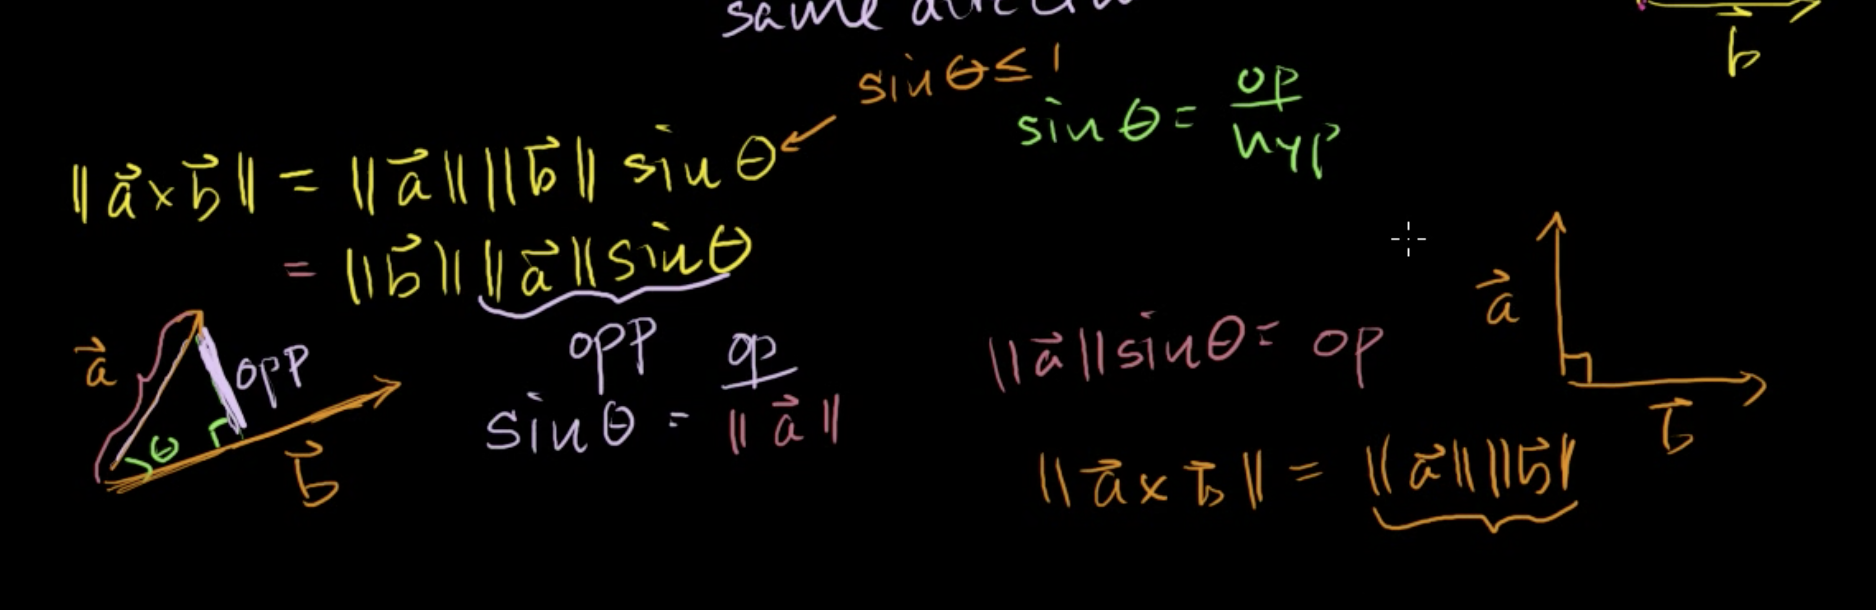 same
b⃗
sinθ ≤ 1
sinθ = op/hyp
‖a⃗×b⃗‖ = ‖a⃗‖‖b⃗‖ sinθ
= ‖b⃗‖‖a⃗‖sinθ
a⃗
opp
θ
b⃗
opp
sinθ = op/‖a⃗‖
‖a⃗‖sinθ = op
a⃗
b⃗
‖a⃗×b⃗‖ = ‖a⃗‖‖b⃗‖